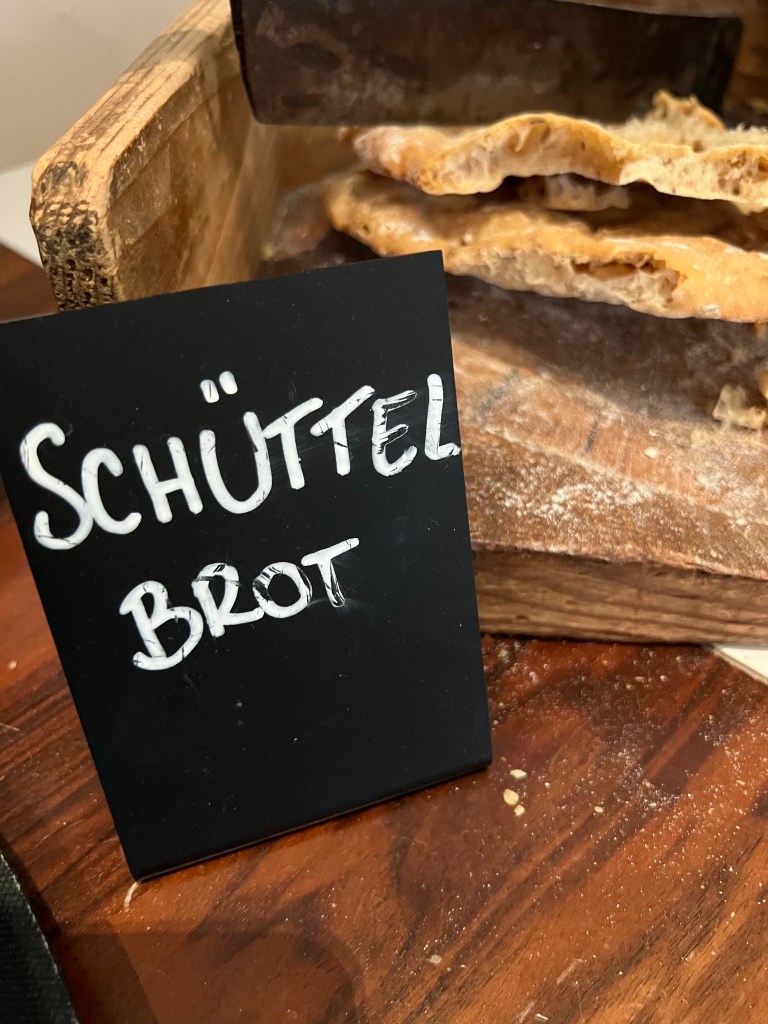 SCHÜTTEL
BROT